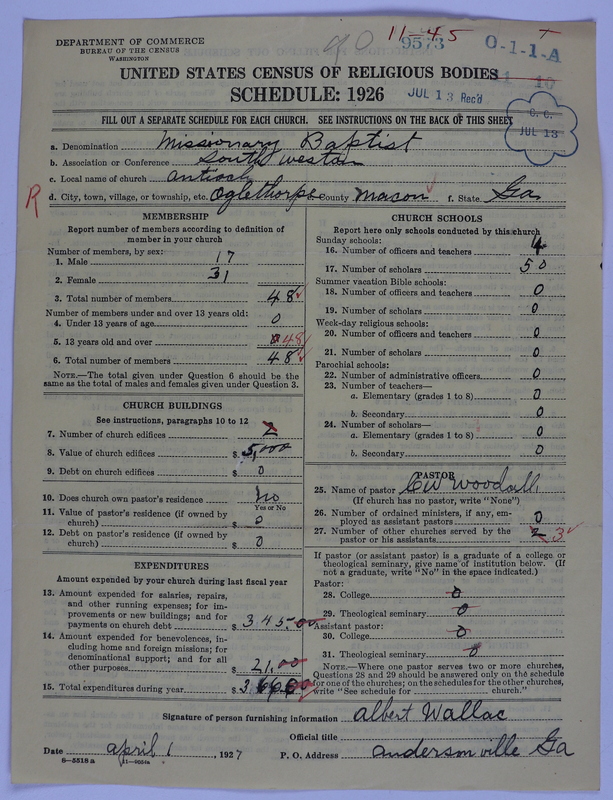 DEPARTMENT OF COMMERCE
BUREAU OF THE CENSUS
WASHINGTON
90
11-45
9573
O-1-1-A
UNITED STATES CENSUS OF RELIGIOUS BODIES
SCHEDULE: 1926
JUL 13 Rec'd
C. C.
JUL 13
FILL OUT A SEPARATE SCHEDULE FOR EACH CHURCH. SEE INSTRUCTIONS ON THE BACK OF THIS SHEET
a. Denomination Missionary Baptist
b. Association or Conference South western
c. Local name of church Antioch
R
d. City, town, village, or township, etc. Oglethorpe e. County Macon f. State Ga.
MEMBERSHIP
Report number of members according to definition of
member in your church
Number of members, by sex:
1. Male 17
2. Female 31
3. Total number of members 48
Number of members under and over 13 years old:
4. Under 13 years of age 0
5. 13 years old and over 48
6. Total number of members 48
NOTE.—The total given under Question 6 should be the
same as the total of males and females given under Question 3.
CHURCH BUILDINGS
See instructions, paragraphs 10 to 12
7. Number of church edifices 2
8. Value of church edifices $ 5,000
9. Debt on church edifices $ 0
10. Does church own pastor's residence No
Yes or No
11. Value of pastor's residence (if owned by
church) $ 0
12. Debt on pastor's residence (if owned by
church) $ 0
EXPENDITURES
Amount expended by your church during last fiscal year
13. Amount expended for salaries, repairs,
and other running expenses; for im-
provements or new buildings; and for
payments on church debt $ 345.00
14. Amount expended for benevolences, in-
cluding home and foreign missions; for
denominational support; and for all
other purposes $ 21.00
15. Total expenditures during year $
CHURCH SCHOOLS
Report here only schools conducted by this church
Sunday schools:
16. Number of officers and teachers 4
17. Number of scholars 50
Summer vacation Bible schools:
18. Number of officers and teachers 0
19. Number of scholars 0
Week-day religious schools:
20. Number of officers and teachers 0
21. Number of scholars 0
Parochial schools:
22. Number of administrative officers 0
23. Number of teachers—
a. Elementary (grades 1 to 8) 0
b. Secondary 0
24. Number of scholars—
a. Elementary (grades 1 to 8) 0
b. Secondary 0
PASTOR
25. Name of pastor CW Woodall
(If church has no pastor, write "None")
26. Number of ordained ministers, if any, em-
ployed as assistant pastors 0
27. Number of other churches served by the
pastor or his assistants 2 3
If pastor (or assistant pastor) is a graduate of a college or
theological seminary, give name of institution below. (If
not a graduate, write "No" in the space indicated.)
Pastor:
28. College 0
29. Theological seminary 0
Assistant pastor:
30. College 0
31. Theological seminary 0
NOTE.—Where one pastor serves two or more churches,
Questions 28 and 29 should be answered only on the schedule
for one of the churches; on the schedules for the other churches,
write "See schedule for ________ church."
Signature of person furnishing information Albert Wallac
Official title
Date April 1, 1927 P. O. Address Andersonville Ga
8-5518 a 11-9051a